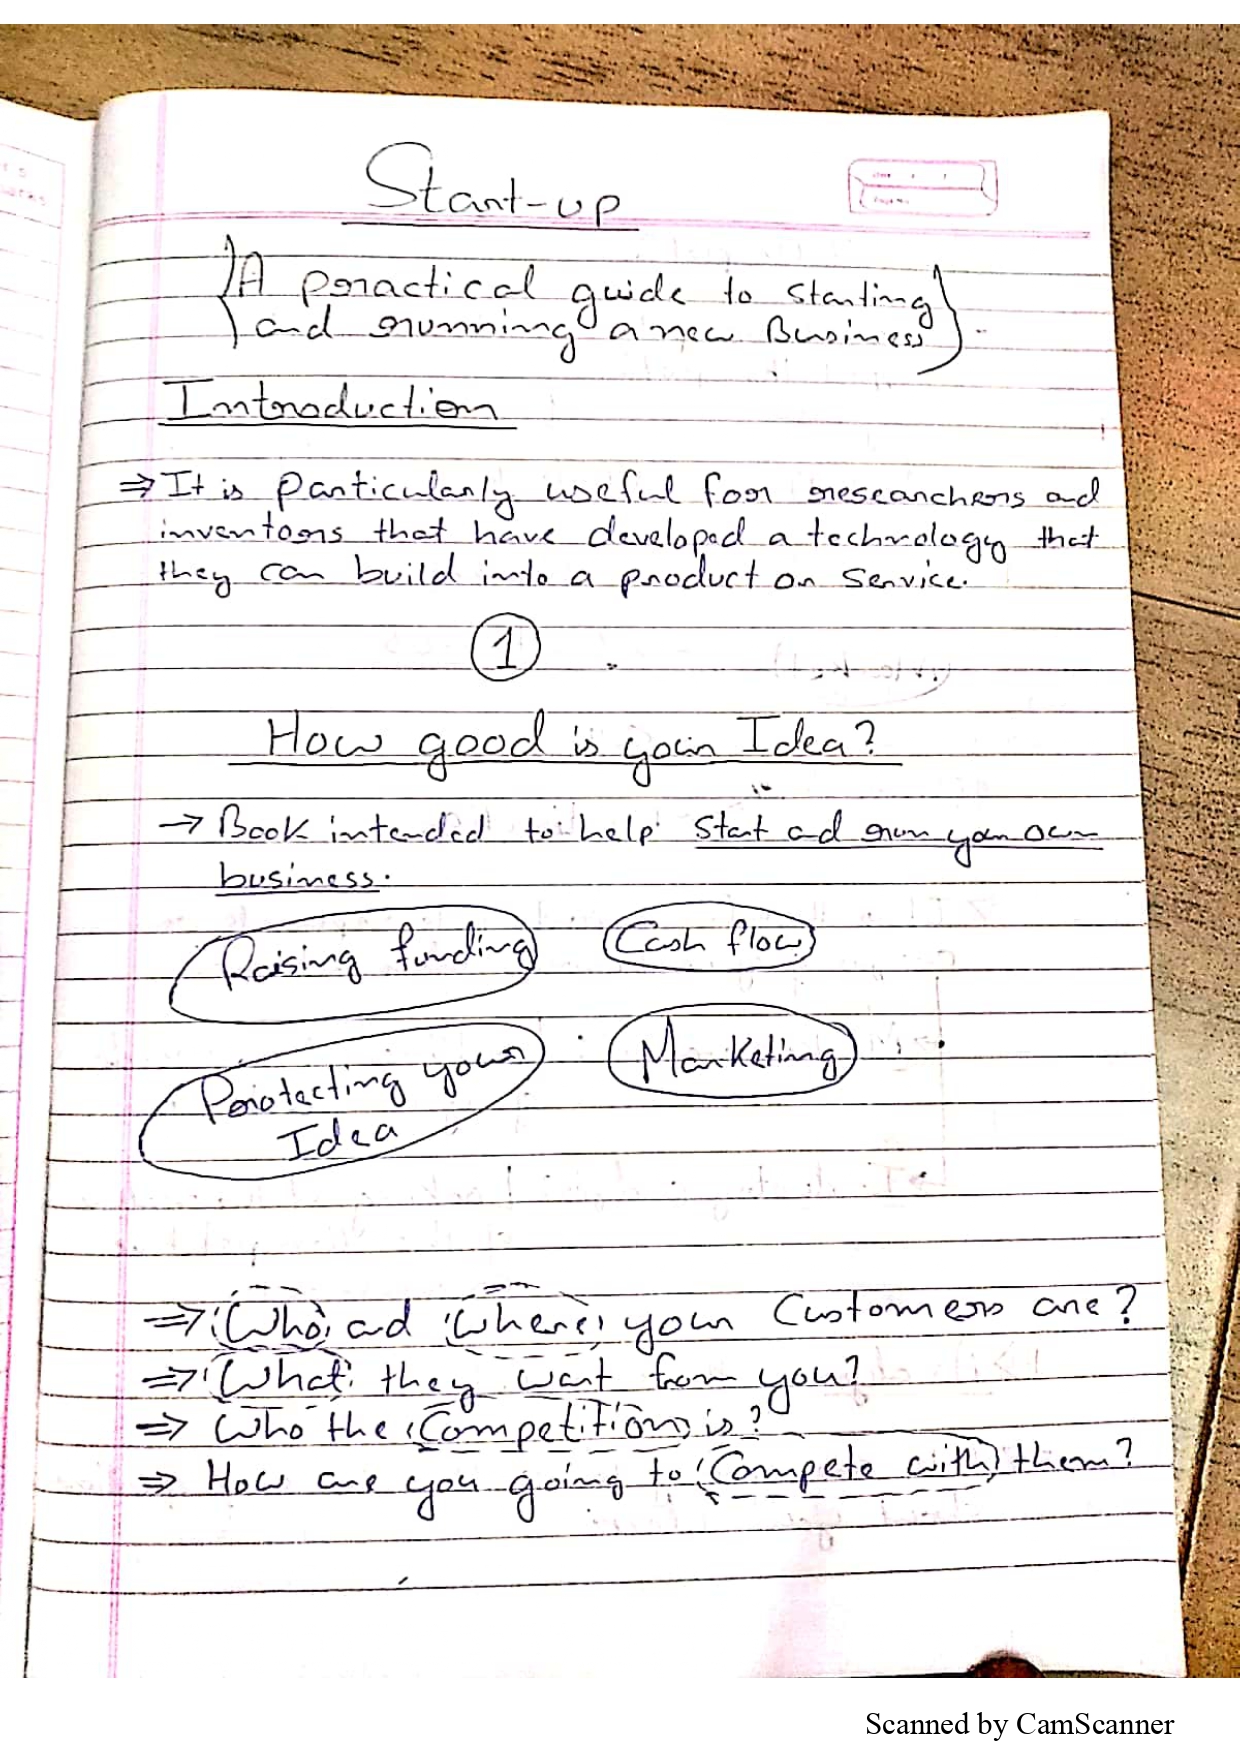 Start-up
{A practical guide to starting
and running a new Business}.
Introduction
⇒ It is particularly useful for researchers and
inventors that have developed a technology that
they can build into a product or service.
1
How good is your Idea?
→ Book intended to help start ad run your own
business.
Raising funding
Cash flow
Protecting your
Idea
Marketing
⇒ Who ad where your Customers are?
⇒ What they want from you?
⇒ Who the Competition is?
⇒ How are you going to Compete with them?
Scanned by CamScanner